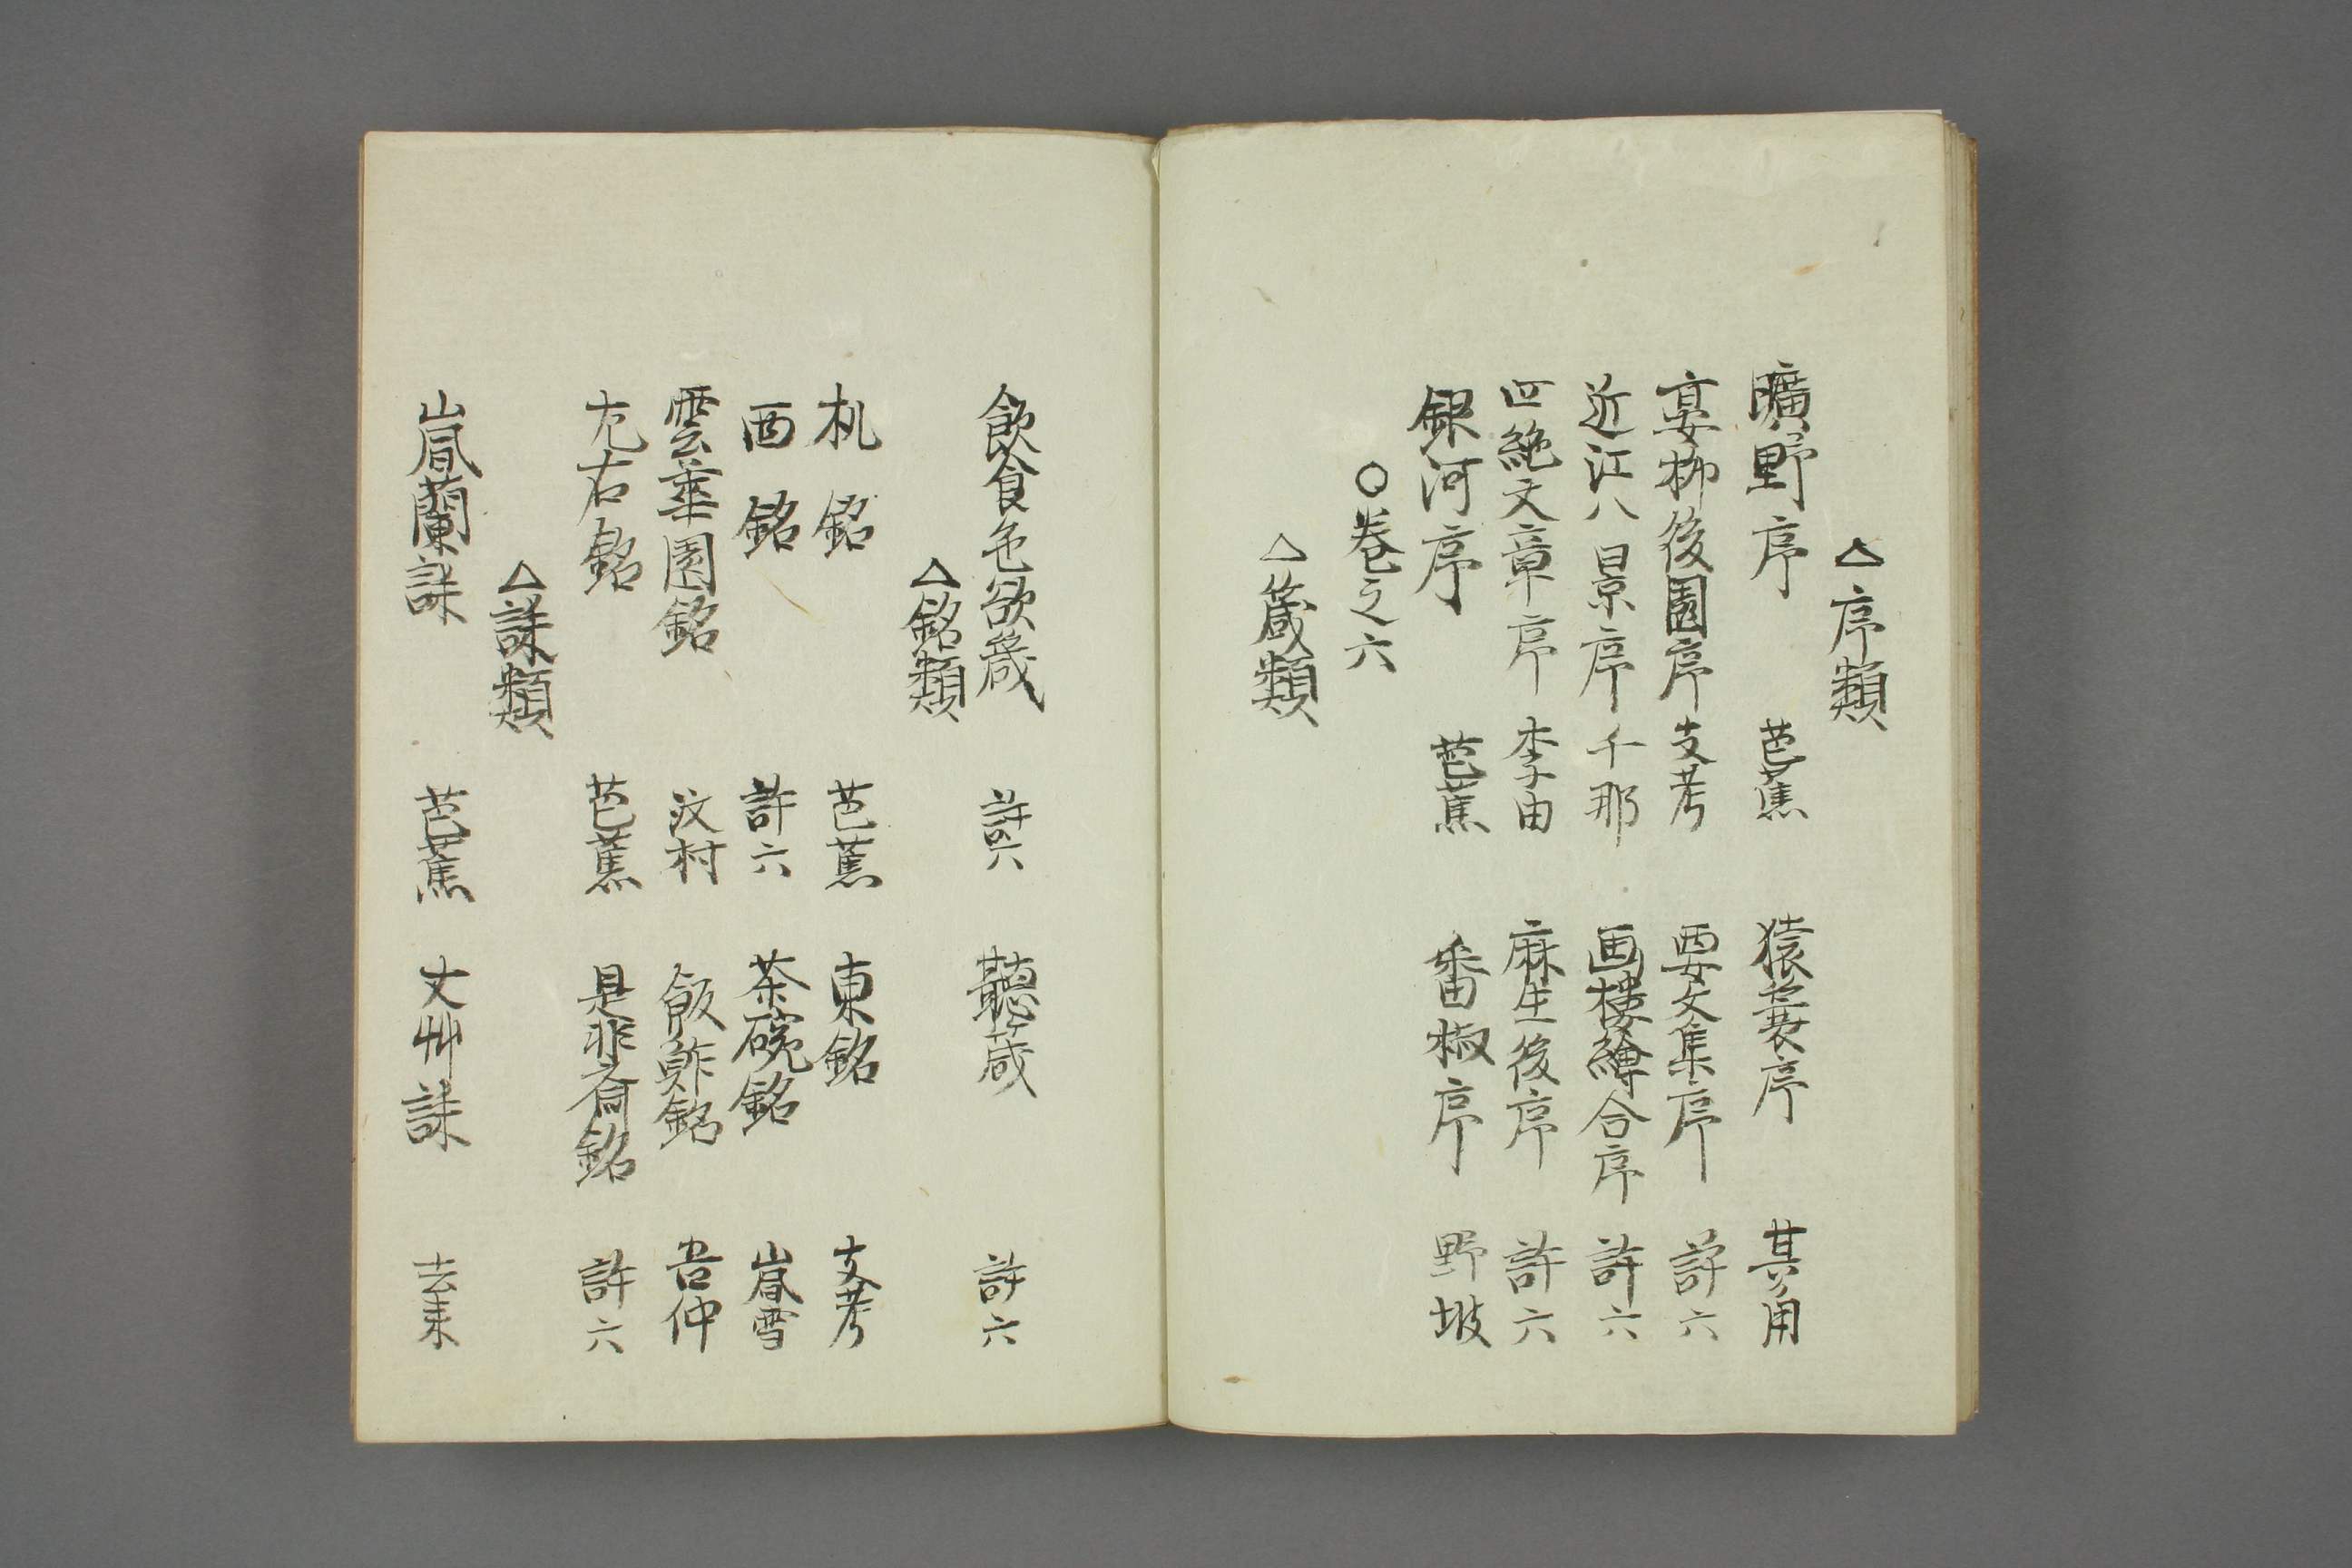 △序類
曠野序 芭蕉 猿蓑序 其角
宴柳後園序 支考 要文集序 許六
近江八景序 千那 画樓縛合序 許六
四絶文章序 李由 麻生後序 許六
銀河序 芭蕉 番椒序 野坡
○巻之六
△箴類
飲食色欲箴 許六 聽箴 許六
△銘類
机銘 芭蕉 東銘 支考
西銘 許六 茶碗銘 嵐雪
雲華園銘 汶村 飯鮓銘 吾仲
左右銘 芭蕉 是非斎銘 許六
△誄類
嵐蘭誄 芭蕉 丈艸誄 去来